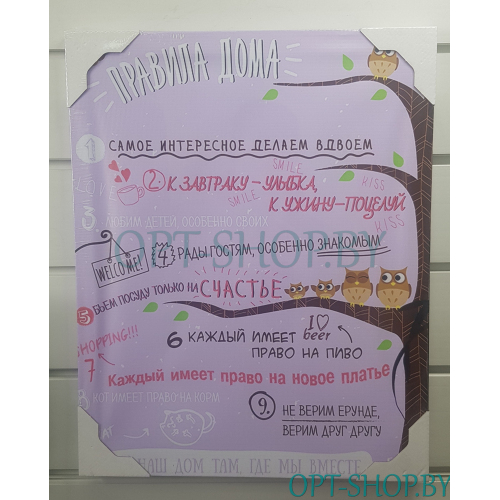 ПРАВИЛА ДОМА
1 САМОЕ ИНТЕРЕСНОЕ ДЕЛАЕМ ВДВОЕМ
SMILE
2. К ЗАВТРАКУ – УЛЫБКА,
KISS
SMILE
К УЖИНУ – ПОЦЕЛУЙ
KISS
3 ЛЮБИМ ДЕТЕЙ, ОСОБЕННО СВОИХ
OPT-SHOP.BY
WELCOME!
4 РАДЫ ГОСТЯМ, ОСОБЕННО ЗНАКОМЫМ
5 БЬЕМ ПОСУДУ ТОЛЬКО НА СЧАСТЬЕ
I
beer
6 КАЖДЫЙ ИМЕЕТ
ПРАВО НА ПИВО
HOPPING!!!
7 Каждый имеет право на новое платье
КОТ ИМЕЕТ ПРАВО НА КОРМ
9. НЕ ВЕРИМ ЕРУНДЕ,
ВЕРИМ ДРУГ ДРУГУ
НАШ ДОМ ТАМ, ГДЕ МЫ ВМЕСТЕ
OPT-SHOP.BY